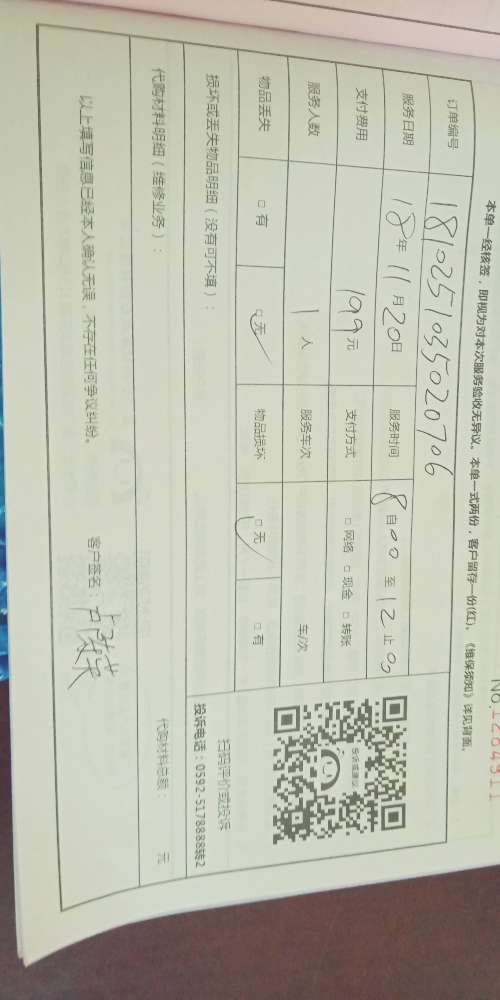 No.1284911
本单一经核签，即视为对本次服务验收无异议。本单一式两份，客户留存一份(红)。《维保须知》详见背面。
订单编号 1810251035020706
服务日期 18年11月20日 服务时间 8自00至12止00
支付费用 199元 支付方式 □网络 □现金 □转账
服务人数 1人 服务车次 车/次
物品丢失 □有 □无 物品损坏 □无 □有
投诉或建议
扫码评价或投诉
投诉电话：0592-5178888转2
损坏或丢失物品明细（没有可不填）：
代购材料明细（维修业务）：
代购材料总额： 元
以上填写信息已经本人确认无误，不存在任何争议纠纷。
客户签名：